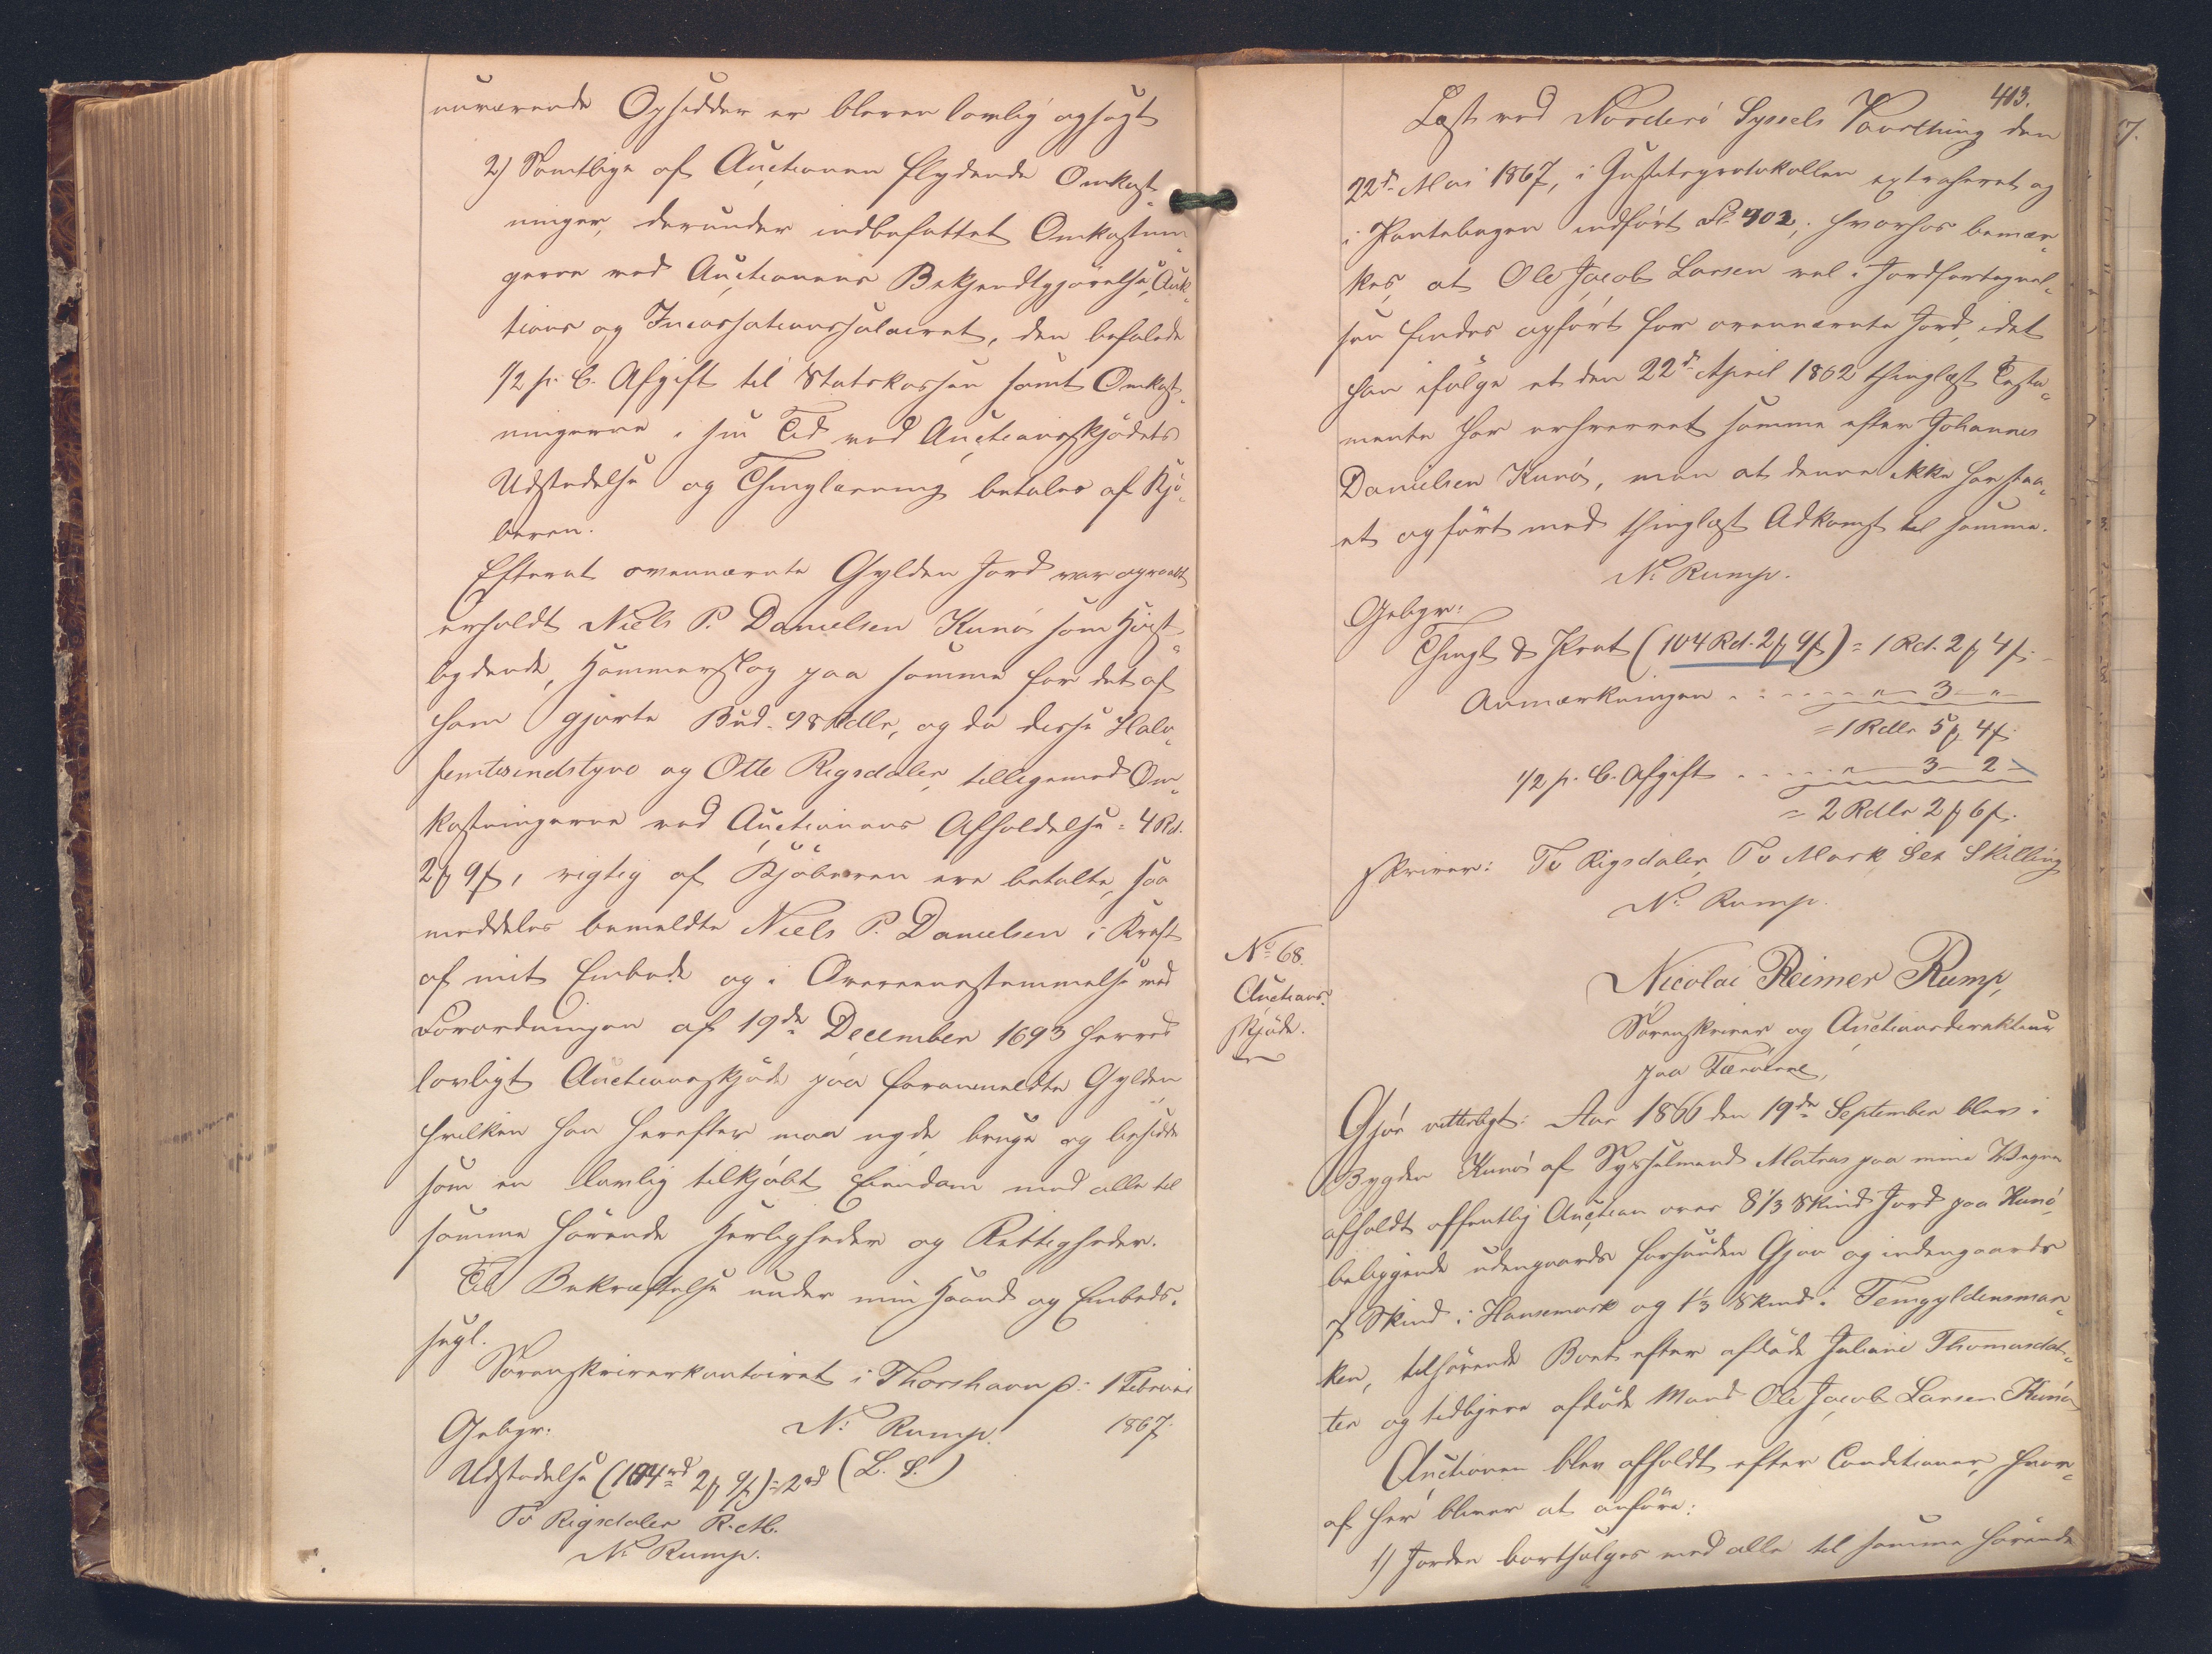 nuværende Opsidder er bleven lovlig opsagt
2) Samtlige af Auctionen flydende Omkost-
ninger, derunder indbefattet Omkostnin-
gerne ved Auctionens Bekjendtgjørelse, Auk-
tions og Incassationssalairet, den befalede
1/2 p. C. Afgift til Statskassen samt Omkost-
ningerne i sin Tid ved Auctionsskjødets
Udstedelse og Thinglæsning betales af Kjø-
beren.
Efterat ovennævnte Gylden Jord var opraabt
erholdt Niels P. Danielsen Kunø som Høist-
bydende, Hammerslag paa samme for det af
ham gjorte Bud 98 Rdlr, og da disse Halv-
femtesindstyve og Otte Rigsdaler, tilligemed Om-
kostningerne ved Auctionens Afholdelse = 4 Rd.
2 ₥ 9 ß, rigtig af Kjøberen ere betalte, saa
meddeles bemeldte Niels P. Danielsen i Kraft
af mit Embede og i Overeensstemmelse med
Forordningen af 19de December 1693 herved
lovligt Auctionsskjøde paa foranmeldte Gylden
hvilken han herefter maa nyde, bruge og besidde
som en lovlig tilkjøbt Eiendom med alle til
samme hørende Herligheder og Rettigheder.
Til Bekræftelse under min Haand og Embeds-
segl.
Sorenskriverkontoiret i Thorshavn d. 1 Februar
1867.
Gebyr: N. Rump.
Udstedelse (104 rd 2 ₥ 9 ß) = 2 rd (L. S.)
To Rigsdaler R. M.
N. Rump.
403.
Læst ved Norderø Syssels Vaarthing den
22de Mai 1867, i Justitsprotokollen extraheret og
i Pantebogen indført Fol. 402, hvorhos bemær-
kes, at Ole Jacob Larsen vel i Jordfortegnel-
sen findes opført for ovennævnte Jord, idet
han ifølge et den 22de April 1862 thinglæst Testa-
mente har erhvervet samme efter Johannes
Danielsen Kunø, men at denne ikke har staa-
et opført med thinglæst Adkomst til samme.
N. Rump.
Gebyr:
Thingl. & Prot. (104 Rd. 2 ₥ 9 ß) = 1 Rd. 2 ₥ 4 ß.
Anmærkningen . . . . . . " — 3 — "
= 1 Rdlr 5 ₥ 4 ß
1/2 p. C. Afgift . . . . . " — 3 — 2 —
= 2 Rdlr 2 ₥ 6 ß.
skriver: To Rigsdaler, To Mark Sex Skilling
N. Rump.
No 68.
Auctions-
skjøde.
Nicolai Reimer Rump,
Sorenskriver og Auctionsdirekteur
paa Færøerne,
Gjør vitterligt: Aar 1866 den 19de September blev i
Bygden Kunø af Sysselmand Matras paa mine Vegne
afholdt offentlig Auction over 8 1/3 Skind Jord paa Kunø
beliggende udengaards Gjov og indengaards
7 Skind i Hansemark og 1 1/3 Skind i Temgyldensmar-
ken, tilhørende Boet efter afdøde Juliane Thomasdat-
ter og tidligere afdøde Mand Ole Jacob Larsen Kunø
Auctionen blev afholdt efter Conditioner, hvor-
af her bliver at anføre:
1) Jorden bortsælges med alle til samme hørende